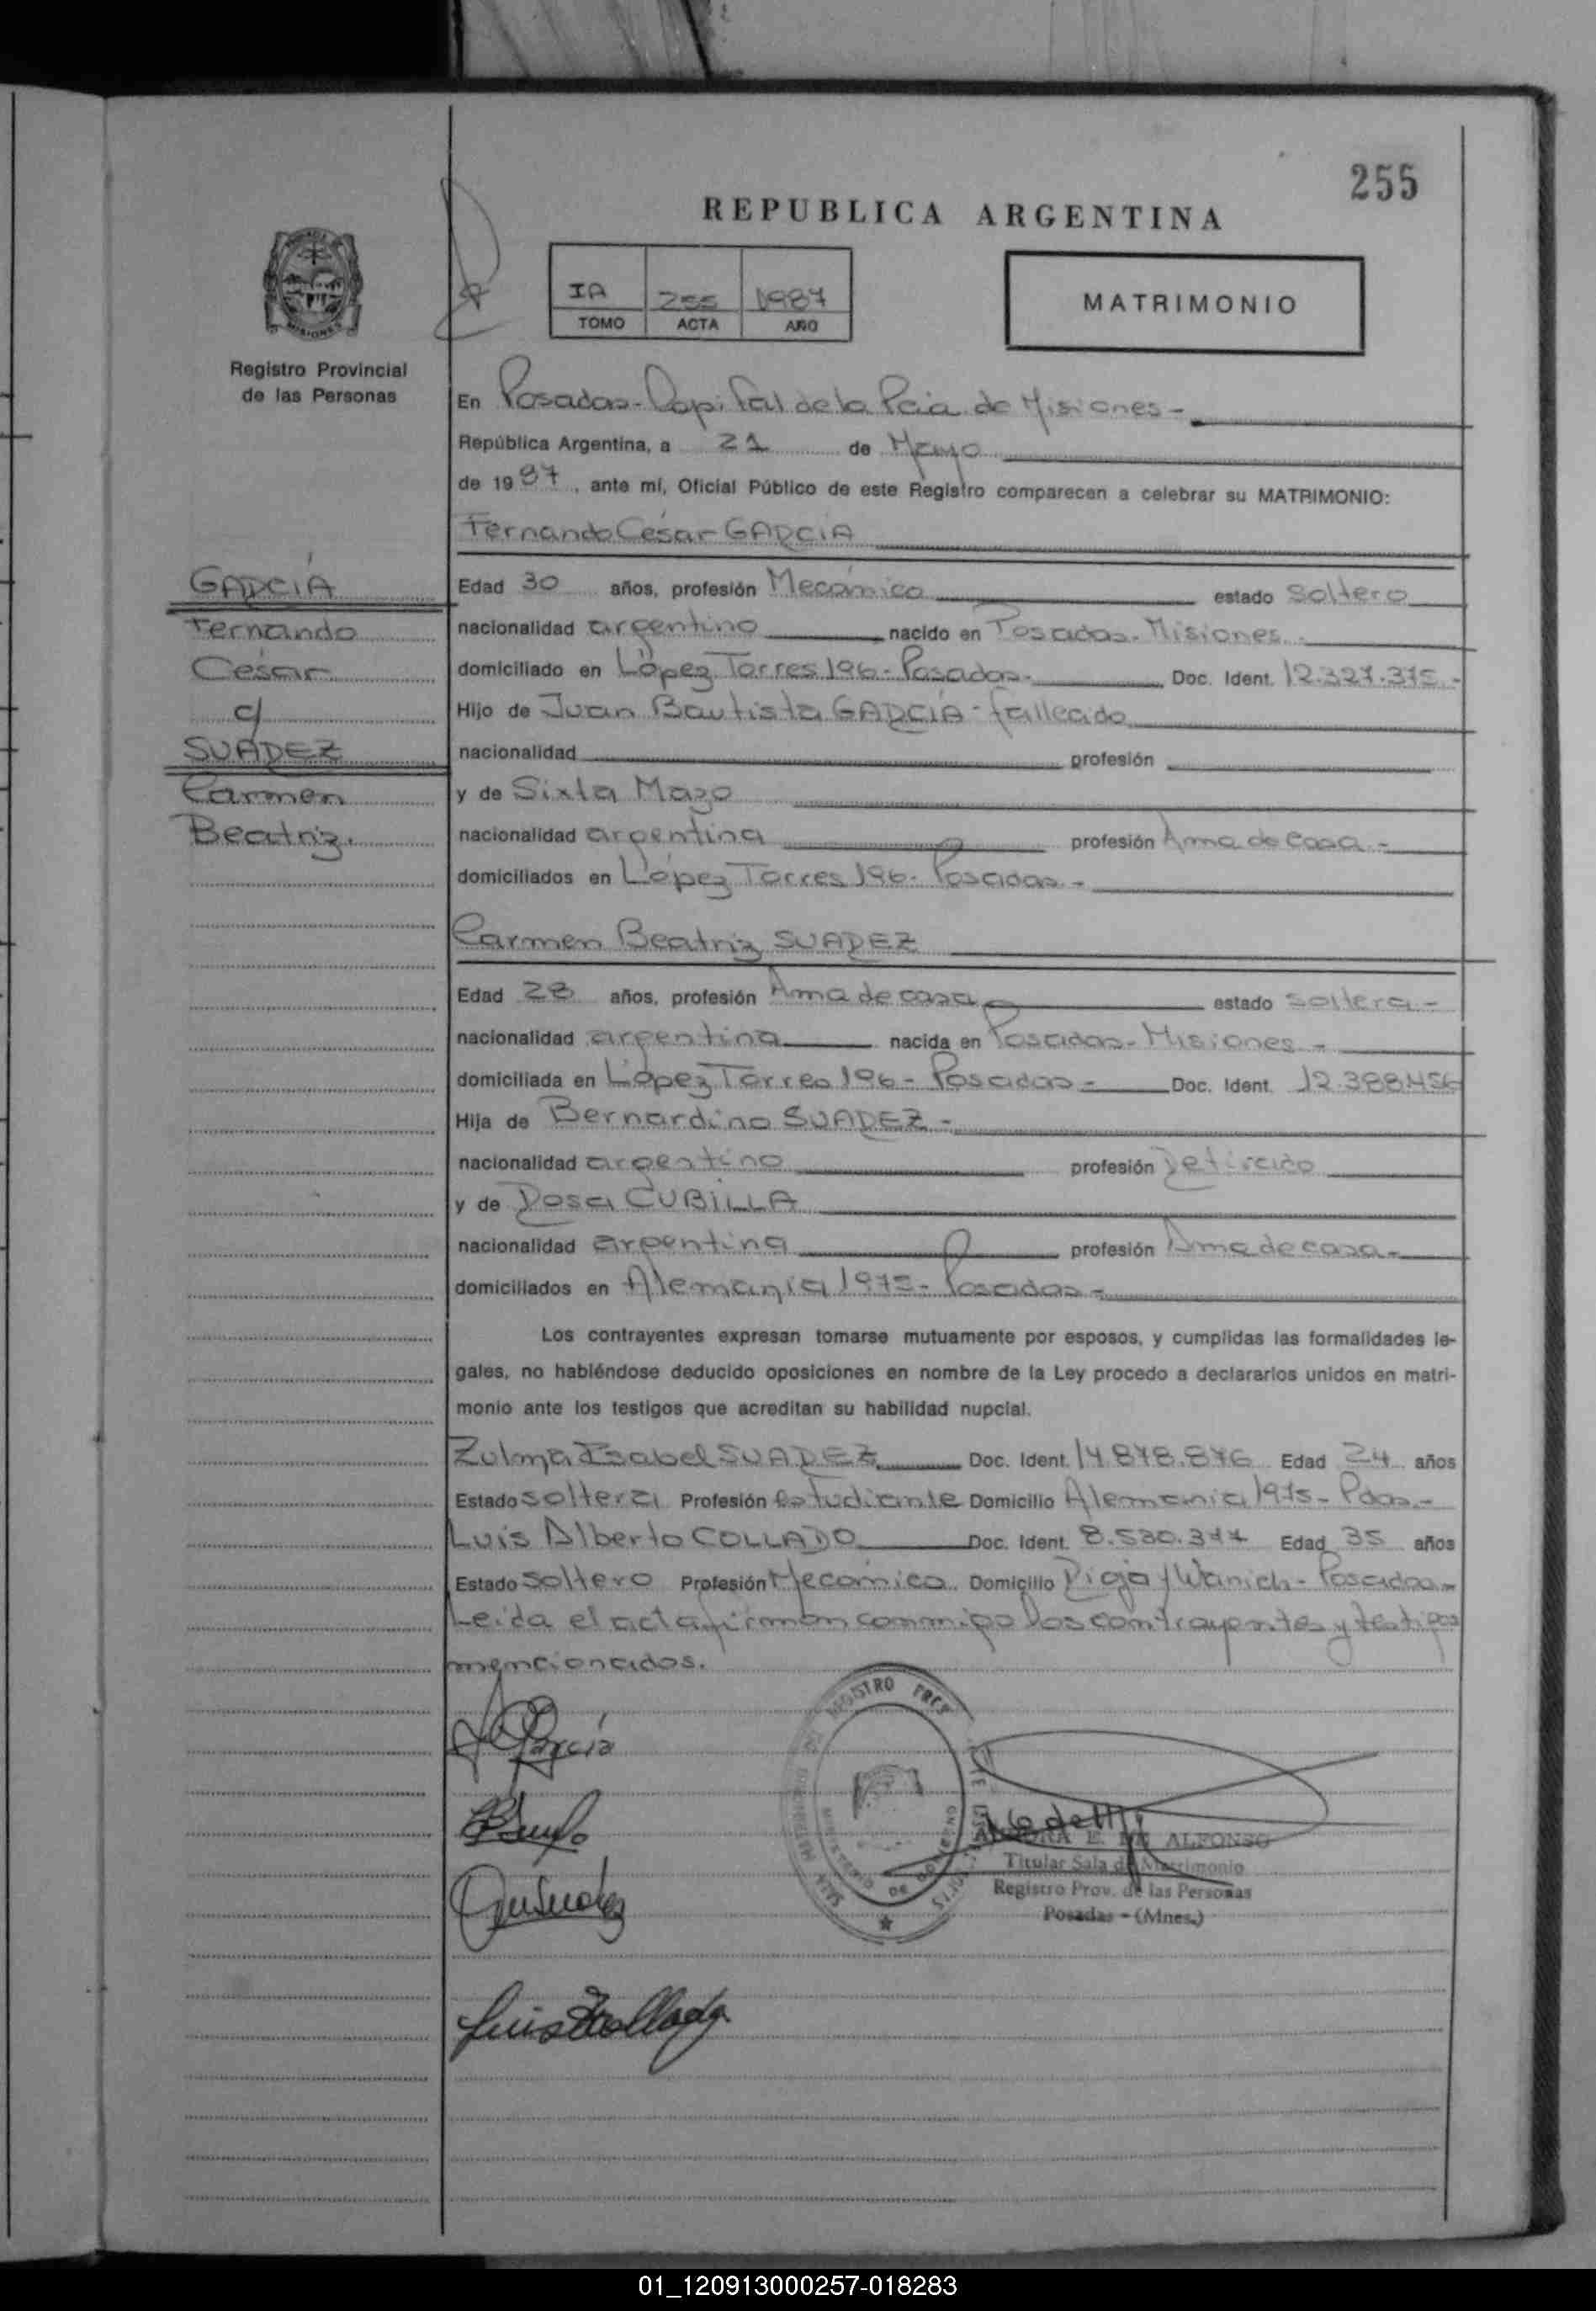 255
REPUBLICA ARGENTINA
IA 255 1987
TOMO ACTA AÑO
MATRIMONIO
MISIONES
Registro Provincial
de las Personas
En Posadas - Capital de la Pcia de Misiones -
República Argentina, a 21 de Mayo
de 1987, ante mí, Oficial Público de este Registro comparecen a celebrar su MATRIMONIO:
Fernando César GARCIA
GARCÍA
Fernando
César
c/
SUAREZ
Carmen
Beatriz.
Edad 30 años, profesión Mecánico estado soltero
nacionalidad argentino nacido en Posadas - Misiones -
domiciliado en López Torres 196 - Posadas - Doc. Ident. 12.327.375 -
Hijo de Juan Bautista GARCIA - fallecido
nacionalidad profesión
y de Sixta Mazo
nacionalidad argentina profesión Ama de casa -
domiciliados en López Torres 196 - Posadas -
Carmen Beatriz SUAREZ
Edad 28 años, profesión Ama de casa estado soltera -
nacionalidad argentina nacida en Posadas - Misiones -
domiciliada en López Torres 196 - Posadas - Doc. Ident. 12.388.456
Hija de Bernardino SUAREZ -
nacionalidad argentino profesión Retirado
y de Rosa CUBILLA
nacionalidad argentina profesión Ama de casa -
domiciliados en Alemania 1975 - Posadas -
Los contrayentes expresan tomarse mutuamente por esposos, y cumplidas las formalidades le-
gales, no habiéndose deducido oposiciones en nombre de la Ley procedo a declararlos unidos en matri-
monio ante los testigos que acreditan su habilidad nupcial.
Zulma Isabel SUAREZ Doc. Ident. 14.878.876 Edad 24 años
Estado soltera Profesión estudiante Domicilio Alemania 1975 - Pdas -
Luis Alberto COLLADO Doc. Ident. 8.530.377 Edad 35 años
Estado soltero Profesión Mecánico Domicilio Rioja y Wanich - Posadas -
Leída el acta firman conmigo los contrayentes y testigos
mencionados.
García
REGISTRO
MINISTERIO DE GOBIERNO
E. DE ALFONSO
Titular Sala de Matrimonio
Registro Prov. de las Personas
Posadas - (Mnes.)
Luis Collado
01_120913000257-018283